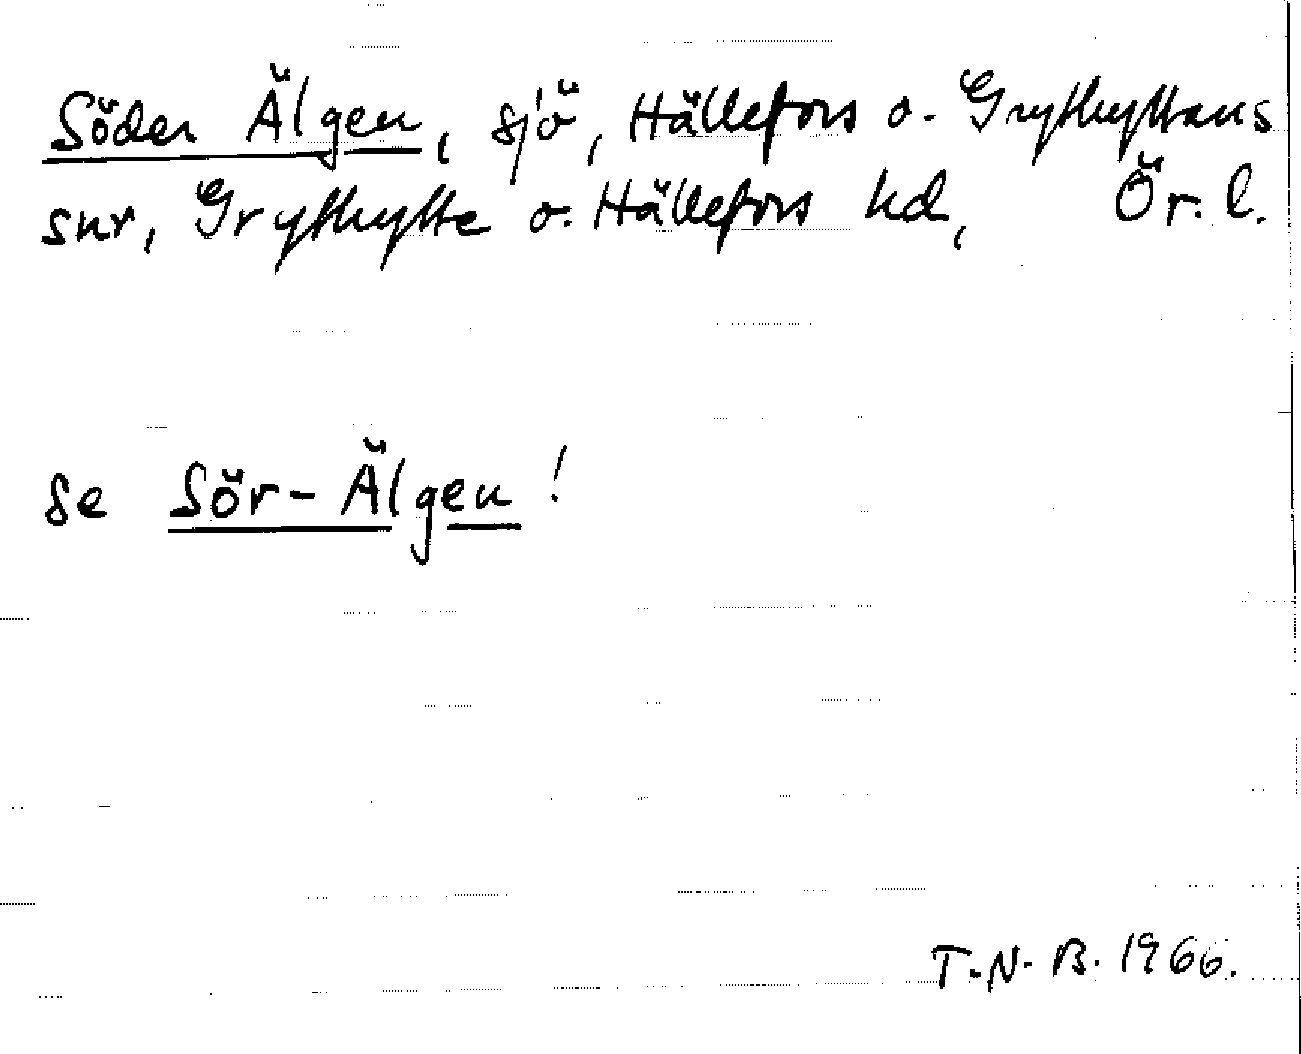 Söder Älgen, sjö, Hällefors o. Grythyttans
snr, Grythytte o. Hällefors hd, Ör. l.
se Sör-Älgen!
T.N.B. 1966.